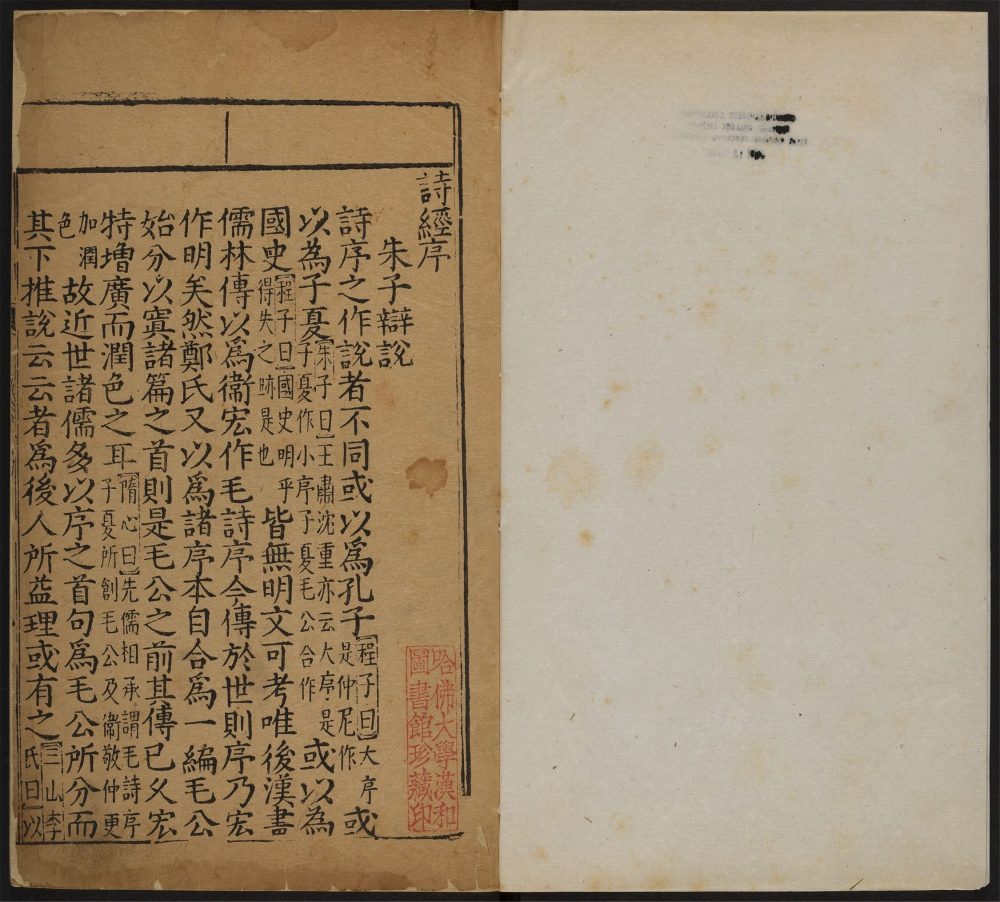 詩經序
朱子辯說
詩序之作說者不同或以爲孔子程子曰大序是仲尼作或
以為子夏朱子曰王肅沈重亦云大序是子夏作小序子夏毛公合作或以為
國史程子曰國史明乎得失之跡是也皆無明文可考唯後漢書
儒林傳以爲衞宏作毛詩序今傳於世則序乃宏
作明矣然鄭氏又以爲諸序本自合爲一編毛公
始分以寘諸篇之首則是毛公之前其傳已久宏
特增廣而潤色之耳隋心曰先儒相承謂毛詩序子夏所創毛公及衞敬仲更
加潤色故近世諸儒多以序之首句爲毛公所分而
其下推說云云者爲後人所益理或有之三山李氏曰以
哈佛大學漢和
圖書館珍藏印